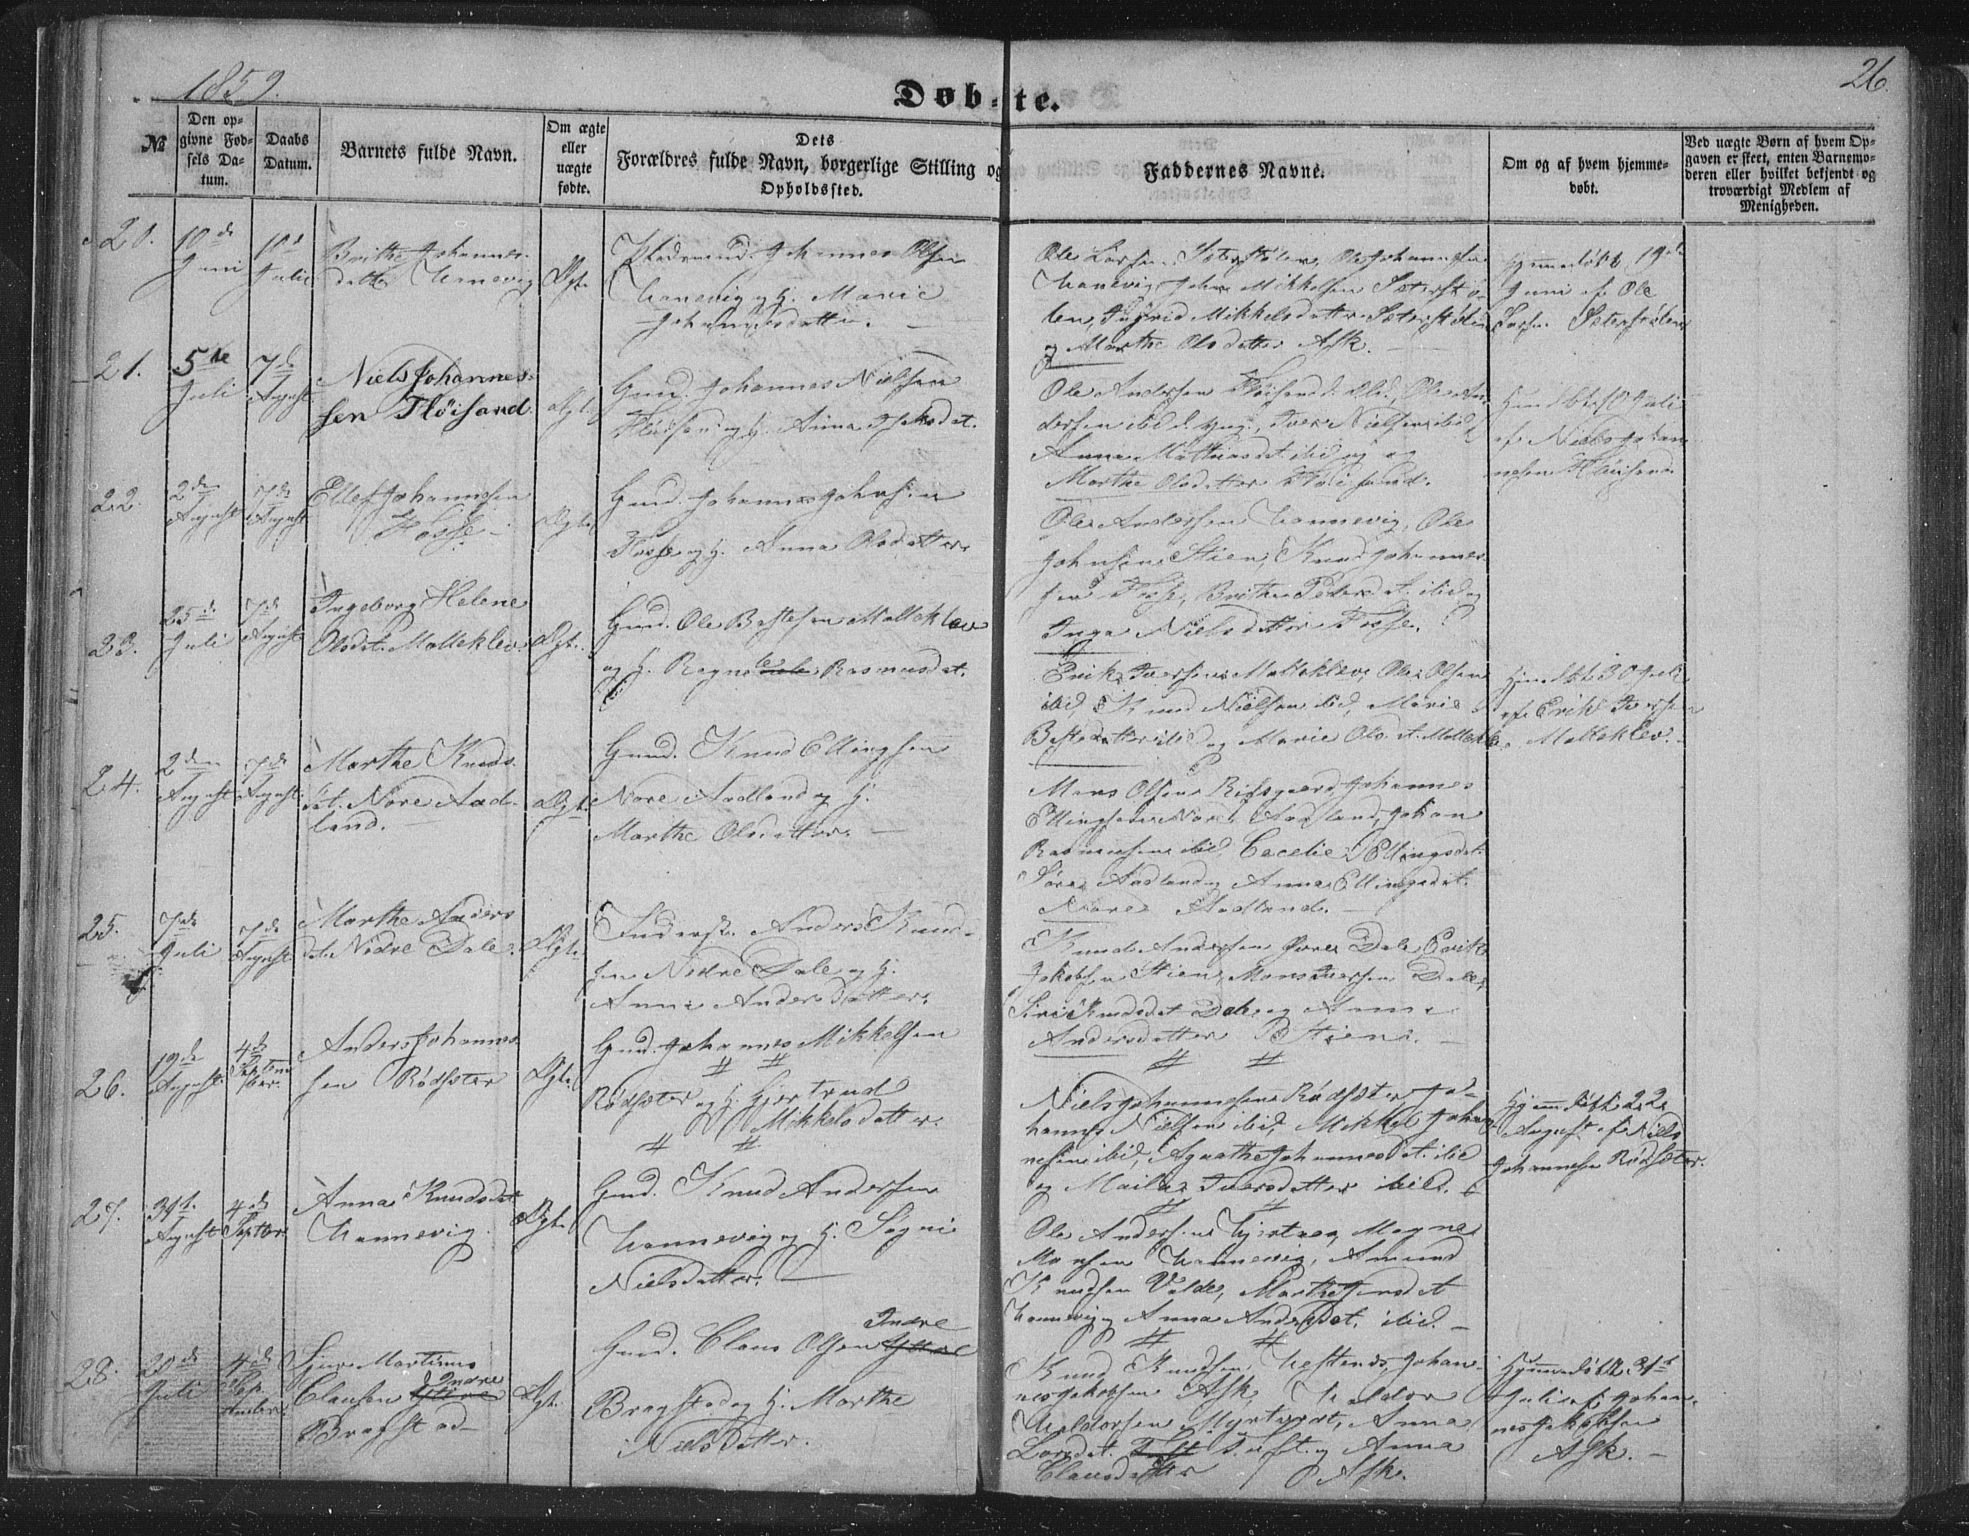 1859.
Døb-te.
26.
№
Den op-
givne Fød-
sels Da-
tum.
Daabs
Datum.
Barnets fulde Navn.
Om ægte
eller
uægte
fødte.
Dets
Forældres fulde Navn, borgerlige Stilling og
Opholdssted.
Faddernes Navne.
Om og af hvem hjemme-
døbt.
Ved uægte Børn af hvem Op-
gaven er skeet, enten Barnemo-
deren eller hvilket bekjendt og
troværdigt Medlem af
Menigheden.
20.
10de
Juni
10d
Julii
Brithe Johannes-
datter Hanevig
Ægte
Johannes Olsen
Hanevig og H. Marie
Johannesdatter.
Ole Larsen Sæterstølen, Ole Johannesen
Hanevig, John Mikkelsen Sæterstø-
len, Ingrid Mikkelsdatter Sæterstølen
og Marthe Olsdatter Ask.
Hjemmedøbt 19de
Juni af Ole
Larsen Sæterstølen
21.
5te
Juli
7de
August
Niels Johannes-
sen Fløisand
Ægte
Gmd. Johannes Nielsen
Fløisand og H. Anna
Ole Andersen Fløisand Old., Ole An-
dersen ibid yng., Iver Nielsen ibid,
Anna Mathiasdat. ibid og
Marthe Olsdatter Fløisand.
af Niels Johan-
nesen Fløisand
22.
2den
August
7de
August
Ellef Johannesen
Fosse
Ægte
Gmd. Johannes Johnsen
Fosse og H. Anna Olsdatter
Ole Andersen Hannevig, Ole
Johnsen Stien, Knud Johannes-
sen Fosse, Brithe Pedersdat. ibid og
Inga Nielsdatter Fosse.
23.
25de
Juli
7de
August
Ingeborg Helene
Olsdat. Molleklev
Ægte
Gmd. Ole Bastesen Molleklev
og H. Rasmusdat.
Erik Iversen Molleklev, Ole Olsen
ibid, Knud Nielsen ibid, Marie
Bastesdatter ibid og Marie Olsdat. Mollekle
Hjemdbt. 30 Juli
af Erik Iversen
Molleklev.
24.
2den
August
7de
August
Marthe Knuds-
dat. Nore Aad-
land.
Ægte
Gmd. Knud Ellingsen
Nore Aadland og H.
Marthe Olsdatter.
Mons Olsen Johannes
Ellingsen Nore Aadland, Johan
Rasmussen ibid, Cecelie Ellingsdat.
Søre Aadland og Anna Ellingsdat.
Nore Aadland.
25.
7de
Juli
7de
August
Marthe Anders-
dat. Nedre Dale.
Ægte
Inderst. Anders Knud-
sen Nedre Dale og H.
Anna Andersdatter.
Knud Andersen Øvre Dale, Erik
Jakobsen Stien, Mons Iversen Dale,
Siri Knudsdat. Dale og Anna
Andersdatter Stien.
26.
19de
August
4de
Septem-
ber.
Anders Johannes-
sen Rødsæter
Ægte
Gmd. Johannes Mikkelsen
Rødsæter og H. Gjertrud
Mikkelsdatter.
Niels Johannesen Rødsæter, Jo-
hannes Nielsen ibid, Mikkel Johan-
nesen ibid, Agathe Johannesdat. ibid
og Iversdatter ibid.
Hjemdøbt 22
August af Niels
Johannesen Rødsæter.
27.
August
4de
Septbr.
Anna Knudsdat
Hannevig
Ægte
Gmd. Knud Andersen
Hannevig og H. Signi
Nielsdatter.
Ole Andersen Hjertaas, Magne
Monsen Hannevig, Amund
Knudsen Valde,
Hannevig og Anna Andersdat. ibid.
28.
20de
Juli
4de
Sep-
tember
Sjur Martinus
Clausen Indre
Bragstad
Ægte
Gmd. Claus Olsen Indre
Bragstad og H. Marthe
Nielsdatter.
Knud Knudsen Johan-
nes Jakobsen Ask, Haldor
Haldorsen Anna
Larsdat. Tuft og Anna
Clausdatter Ask.
Hjemmedøbt 31te
Juli af Johan-
nes Jakobsen
Ask.